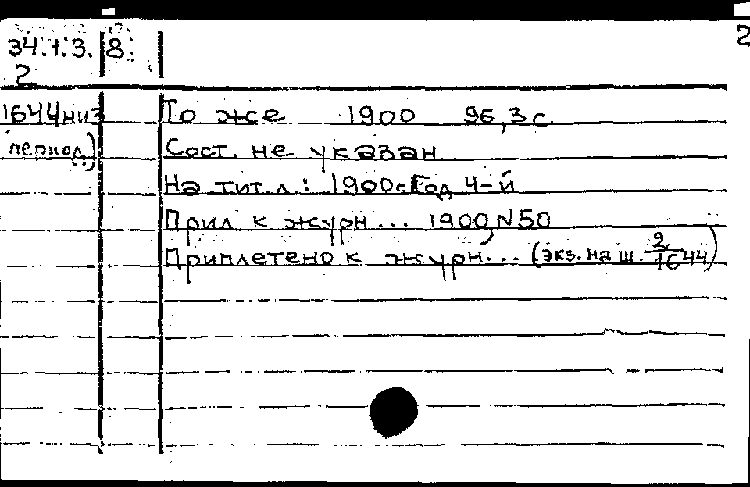 2
34.1.3. 8.
2
1644 низ То же 1900 96,3 с.
период.) Сост. не указан
На тит. л.: 1900 г. Год 4-й
Прил. к журн... 1900, N 50
Приплетено к журн... (экз. на ш. 2/1644)